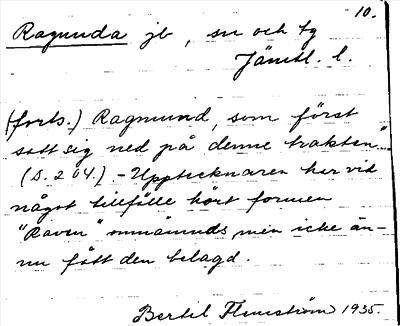 10.
Ragunda jb, sn och tg
Jämtl. l.
(forts.) Ragmund, som först
satt sig ned på denne trakten"
(S. 204.) - Upptecknaren har vid
något tillfälle hört formen
"Raven" omnämnds, men icke än-
nu fått den belagd.
Bertil Flemström 1935.